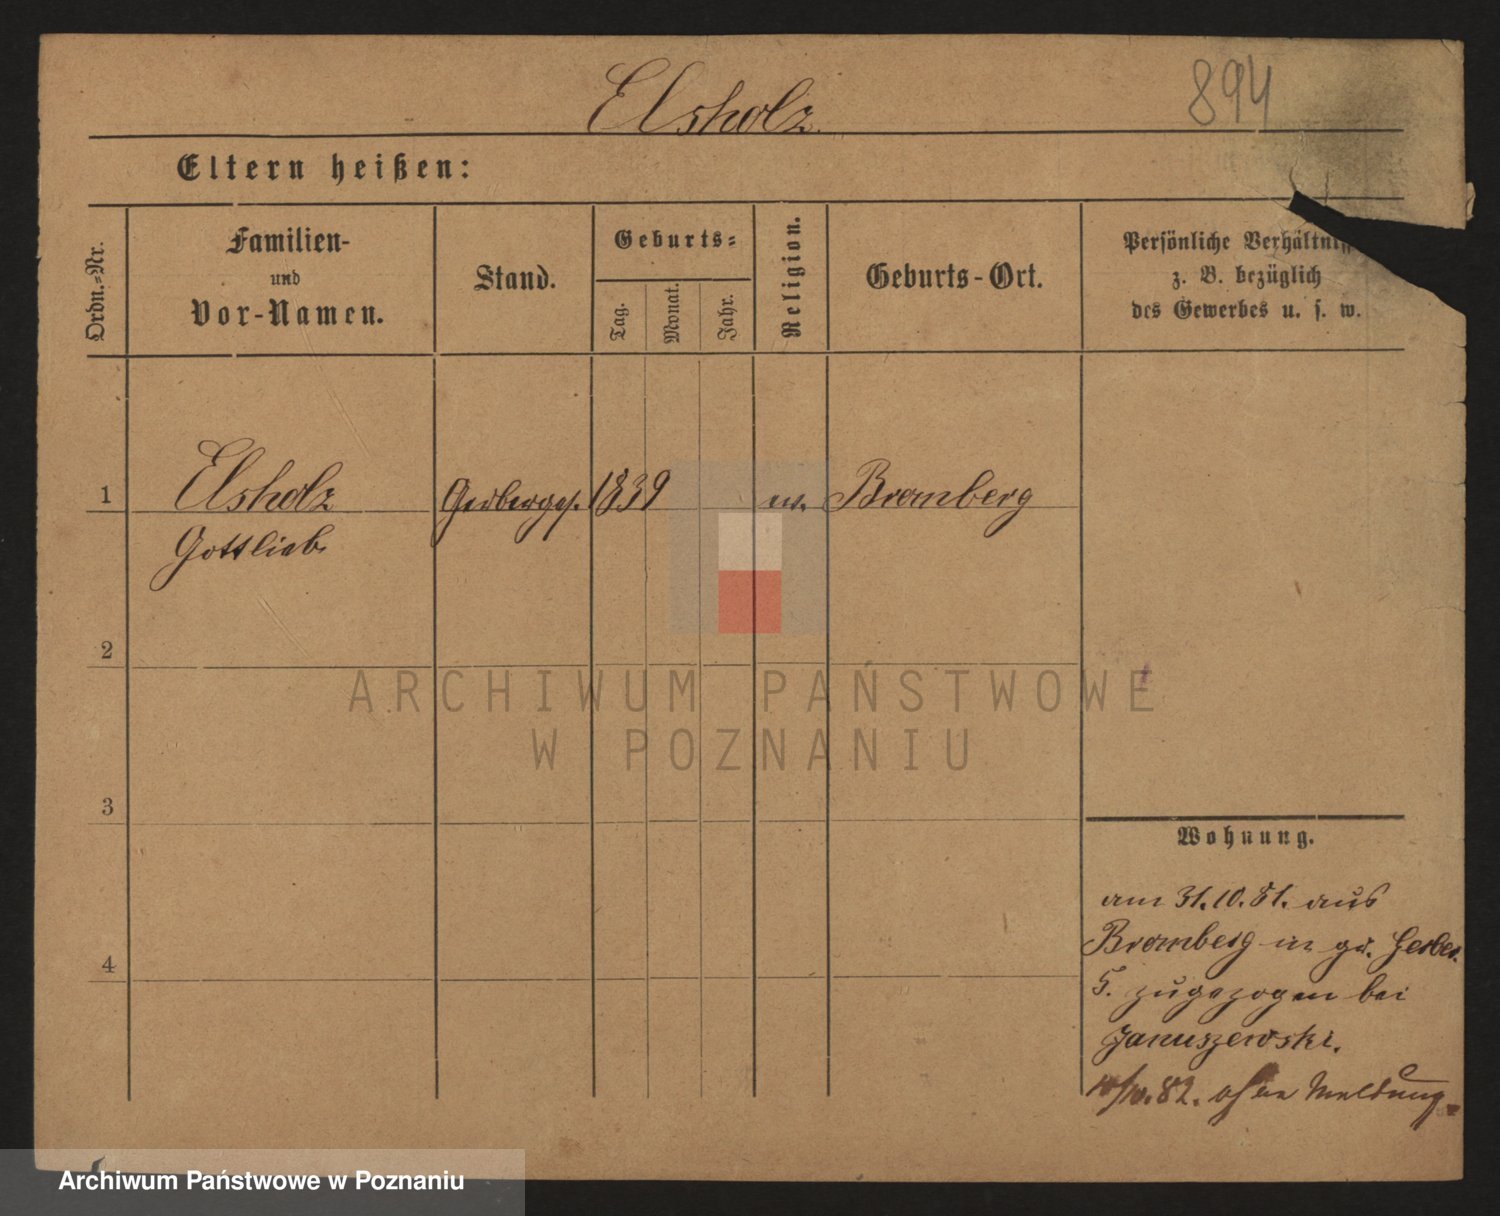 Elsholz
894
Eltern heißen:
Ordn.-Nr.
Familien-
und
Vor-Namen.
Stand.
Geburts-
Tag.
Monat.
Jahr.
Religion.
Geburts-Ort.
Persönliche Verhältniss
z. B. bezüglich
des Gewerbes u. s. w.
1
Elsholz
Gerberges. 1839
Bromberg
Gottlieb
2
3
4
ARCHIWUM PAŃSTWOWE
W POZNANIU
Wohnung.
am 31.10.81. aus
Bromberg in gr. Gerber.
5. zugezogen bei
Januszewski.
10.82. ohne Meldung.
Archiwum Państwowe w Poznaniu